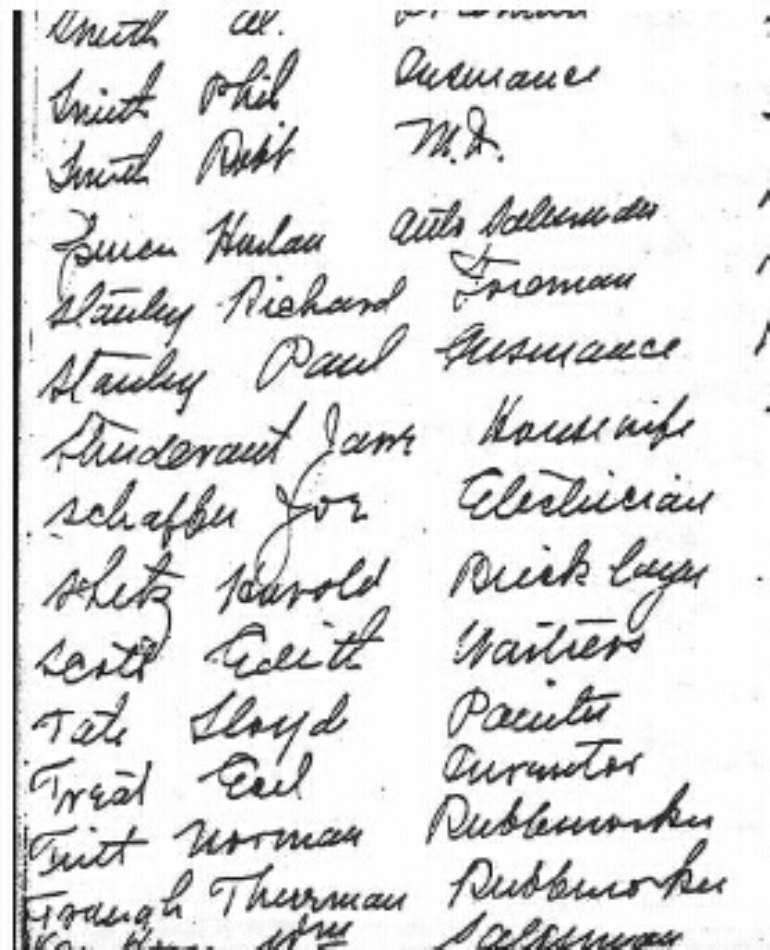 Smith Al.
Smith Phil Insurance
Smith Robt M.D.
Harlan Auto Salesman
Stanley Richard Foreman
Stanley Paul Insurance
Studevant Jane Housewife
Schaffer Joe Electrician
Shetz Harold Brick layer
Scott Edith Waitress
Tate Lloyd Painter
Treat Earl Inventor
Tritt Norman Rubberworker
Trough Thurman Rubberworker
Salesman